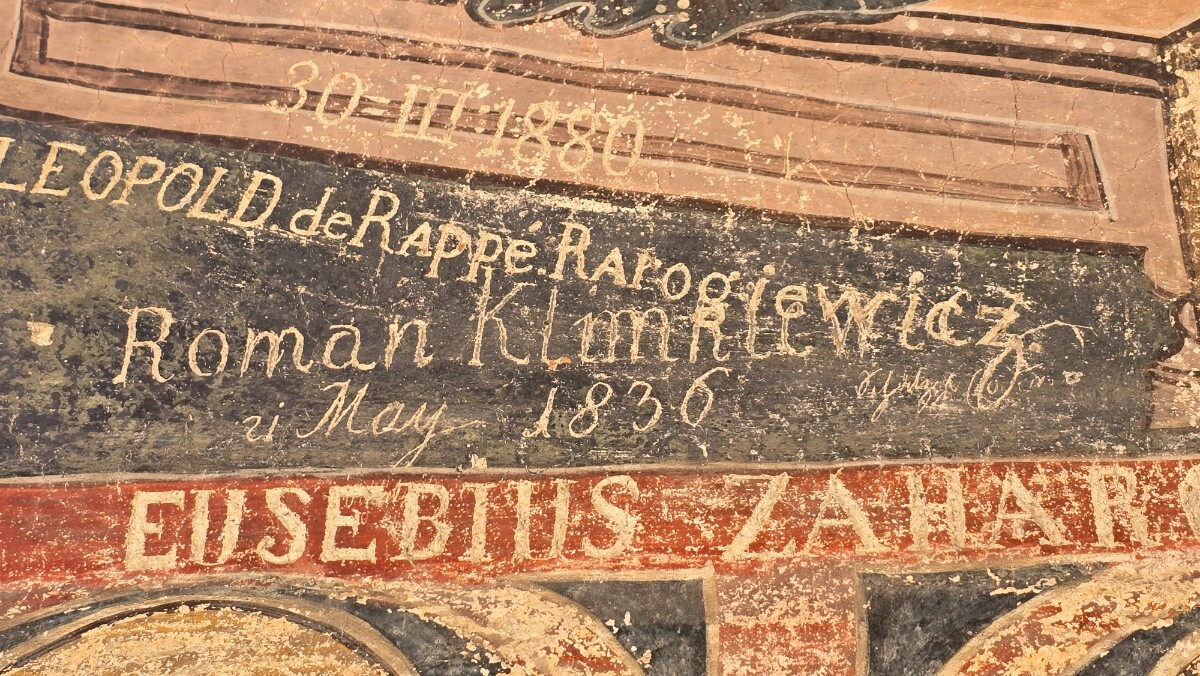 30-III.1880
LEOPOLD.de Rappé.Rarogiewicz
Roman Klimkiewicz
May 1836
EUSEBIUS ZAHAR